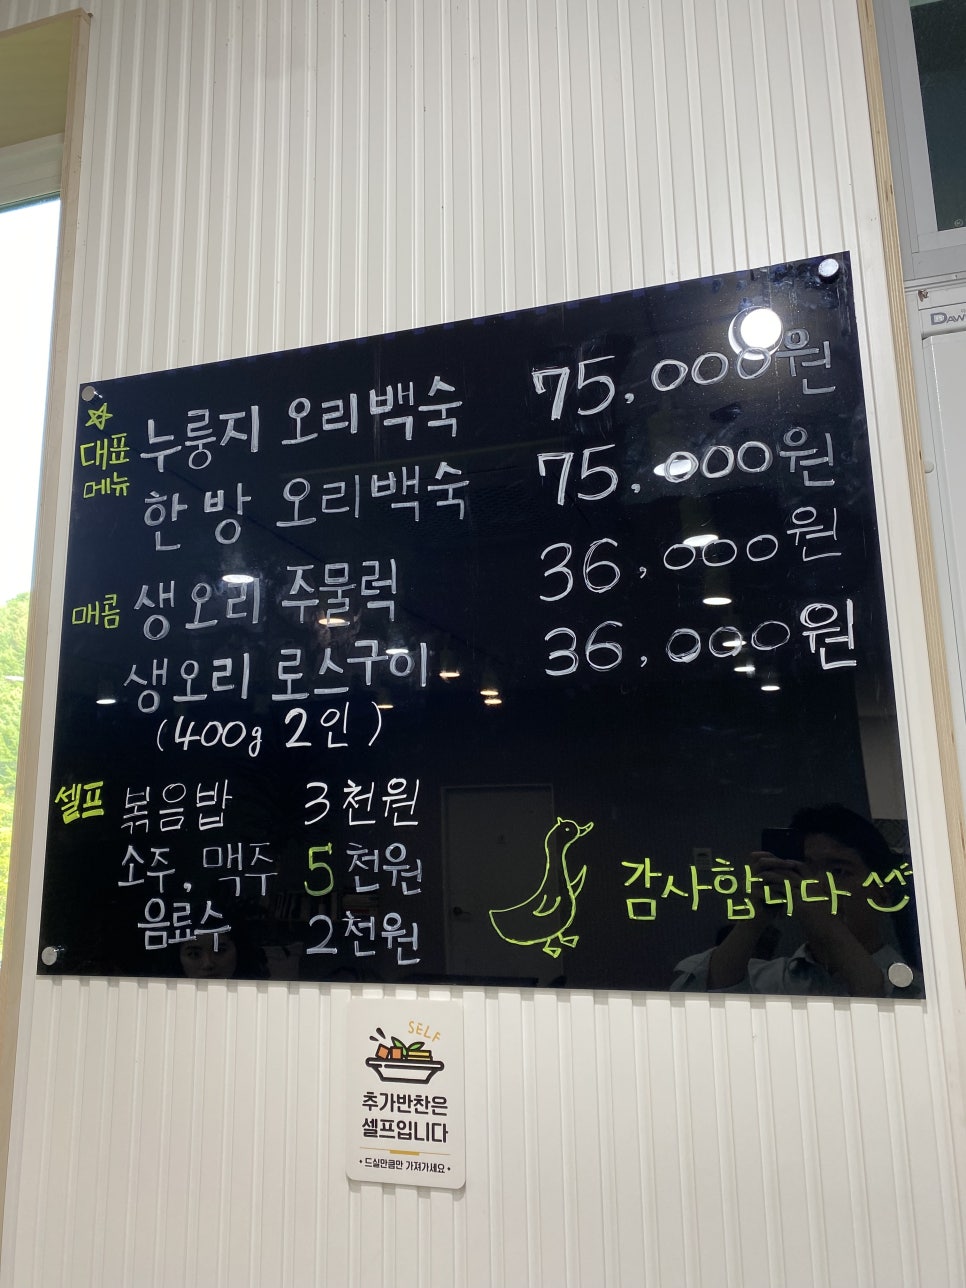 대표 누룽지 오리백숙 75,000원
메뉴
한방 오리백숙 75,000원
매콤 생오리 주물럭 36,000원
생오리 로스구이 36,000원
(400g 2인)
셀프 볶음밥 3천원
소주, 맥주 5천원
음료수 2천원
감사합니다
SELF
추가반찬은
셀프입니다
• 드실만큼만 가져가세요 •